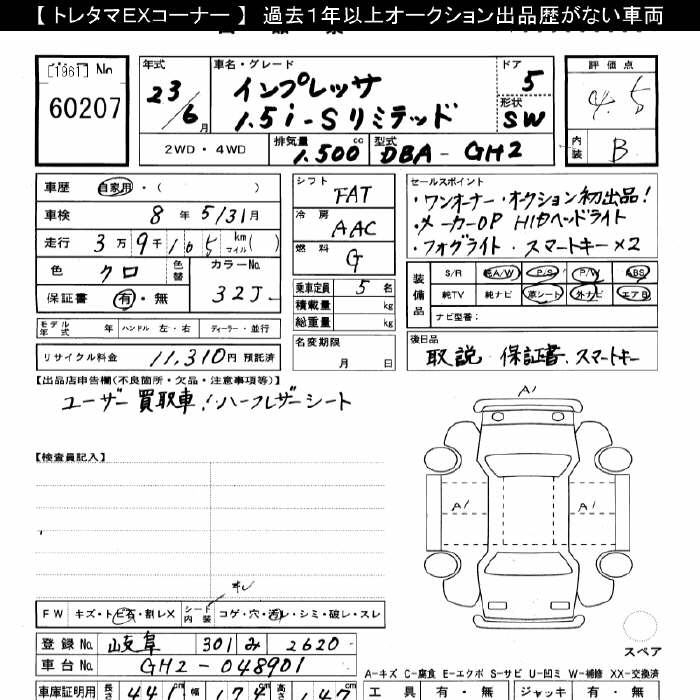 【 トレタマEXコーナー 】 過去1年以上オークション出品歴がない車両
[1961] No
60207
年式
23/6月
車名・グレード
インプレッサ
1.5i-Sリミテッド
ドア
5
形状
SW
2WD・4WD
排気量 1.500 cc
型式 DBA-GH2
評価点
4.5
内装
B
車歴 自家用・( )
車検 8年 5/31月
走行 3万9千105 km マイル( )
色 クロ 色替 カラーNo. 32J
保証書 有・無
モデル年式 年 ハンドル 左・右 ディーラー・並行
リサイクル料金 11,310円 預託済
シフト FAT
冷房 AAC
燃料 G
乗車定員 5名
積載量 kg
総重量 kg
名変期限
月 日
セールスポイント
・ワンオーナー・オークション初出品!
・メーカーOP HIDヘッドライト
・フォグライト・スマートキー×2
装備品
S/R ABA/W P/S P/W ABS
純TV 純ナビ 革シート 外ナビ エアB
ナビ型番:
後日品
取説 保証書、スマートキー
【出品店申告欄(不良箇所・欠品・注意事項等)】
ユーザー買取車!ハーフレザーシート
【検査員記入】
A1
A1
A1
キレ
FW キズ・トビ石・割レX シート内装 コゲ・穴・汚レ・シミ・破レ・スレ
スペア
登録No. 岐阜 301 み 2620
車台No. GH2-048901
A-キズ C-腐食 E-エクボ S-サビ U-凹ミ W-補修 XX-交換済
車庫証明用 長さ 441cm 幅 174cm 高さ 147cm
工具 有・無 ジャッキ 有・無